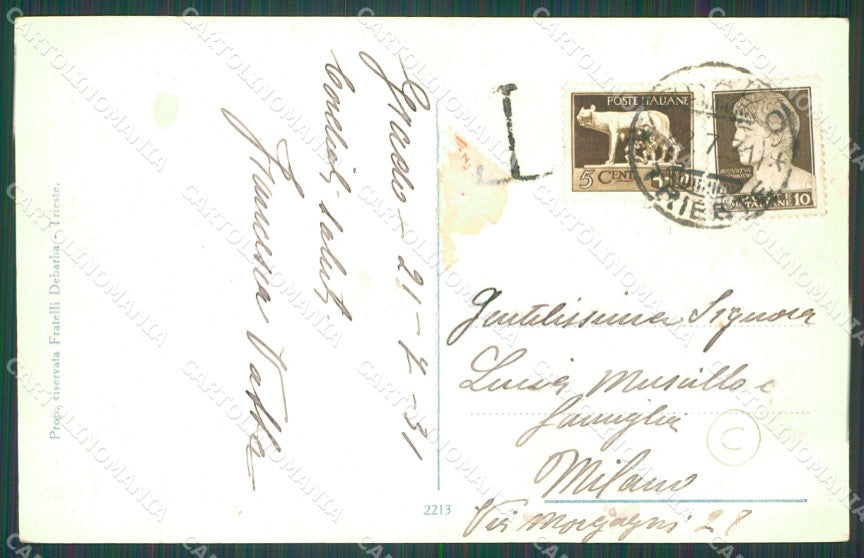 Grado 21-7-31
Cordiali saluti
Francesca
Prop. riservata Fratelli Debarba - Trieste.
2213
T
POSTE ITALIANE
5 CENT
AVGVSTVS
POSTE ITALIANE 10
GRADO
TRIESTE
Gentilissima Signora
Luisa Musillo e
famiglia
Milano
Via Morgagni 28
C
CARTOLINOMANIA